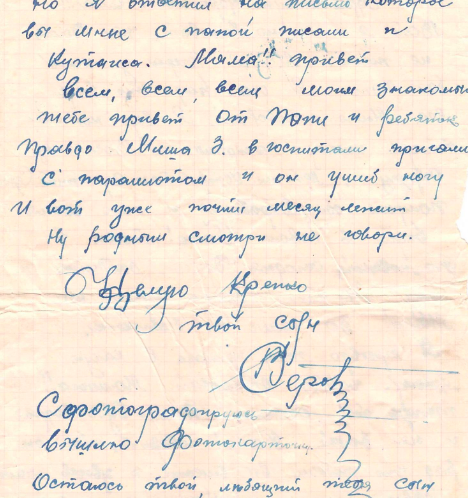 но я ответил на письмо которое
вы мне с папой писали и
Кутаиса. Мама!! привет
всем, всем, всем моим знакомы
тебе привет от Папи и ребяток
Правдо Миша З. в госпитали пригали
с парашютом и он ушиб ногу
И вот уже почти месяц лежит
Ну родным смотри не говори.
Целую Крепко
твой сын
Сфотографируюсь
вышлю Фотокарточки
Остаюсь твой, любящий тебя сын